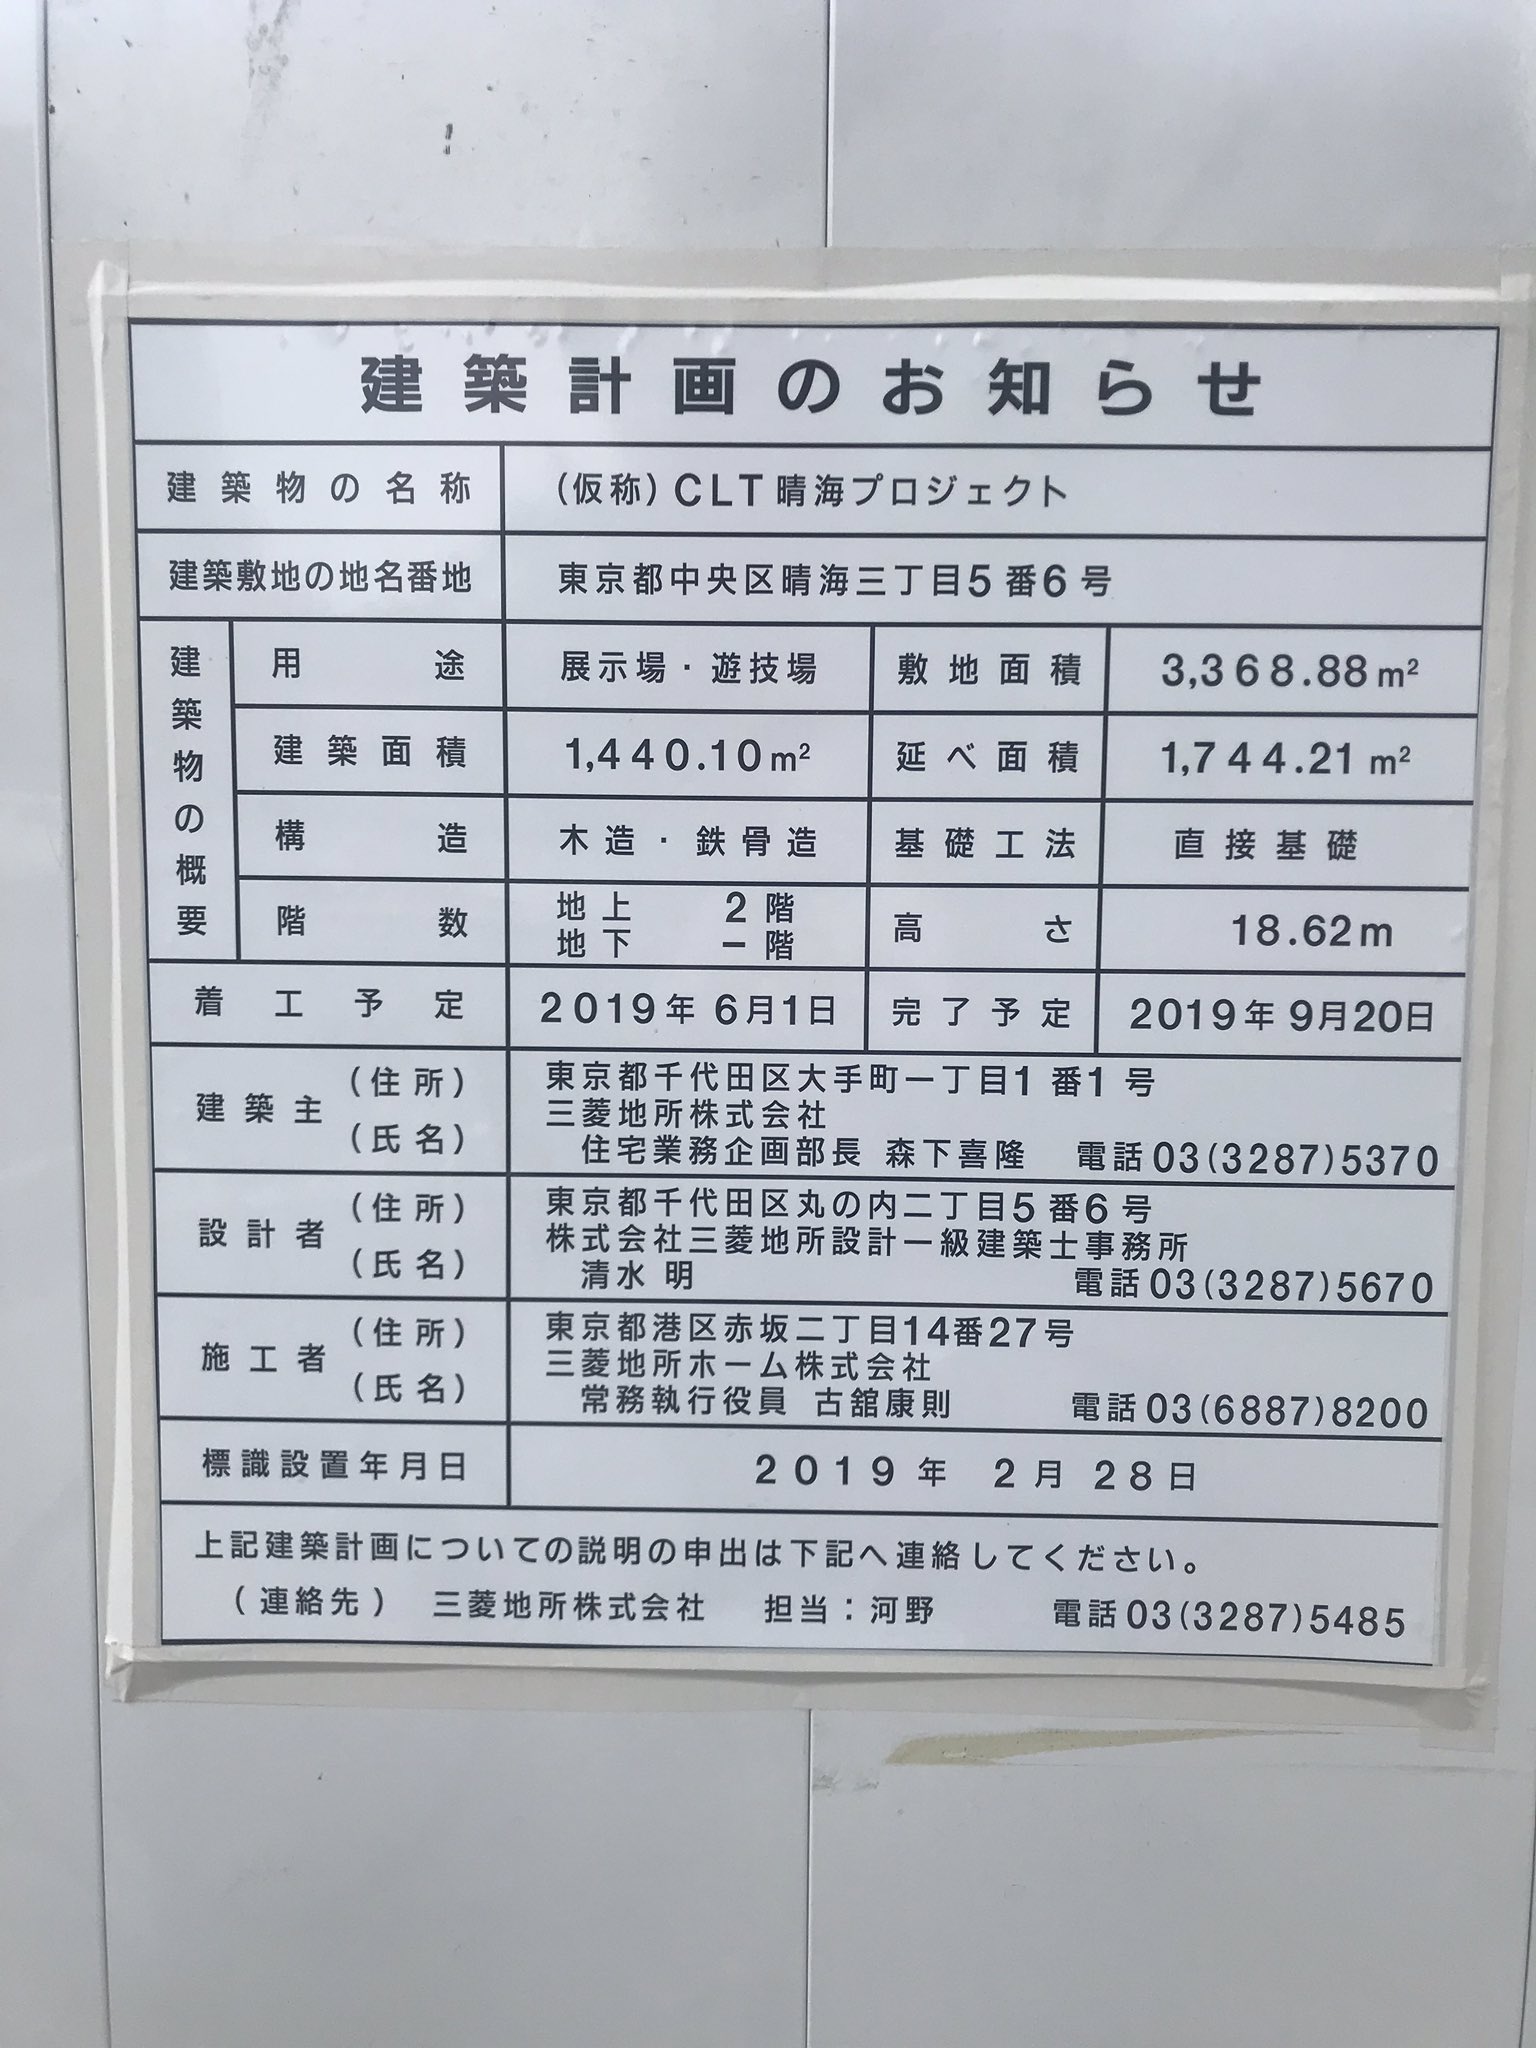 建築計画のお知らせ
建築物の名称 (仮称)CLT晴海プロジェクト
建築敷地の地名番地 東京都中央区晴海三丁目5番6号
建築物の概要
用途 展示場・遊技場 敷地面積 3,368.88m²
建築面積 1,440.10m² 延べ面積 1,744.21m²
構造 木造・鉄骨造 基礎工法 直接基礎
階数 地上 2階 高さ 18.62m
地下 ー階
着工予定 2019年6月1日 完了予定 2019年9月20日
建築主 (住所) 東京都千代田区大手町一丁目1番1号
(氏名) 三菱地所株式会社
住宅業務企画部長 森下喜隆 電話03(3287)5370
設計者 (住所) 東京都千代田区丸の内二丁目5番6号
(氏名) 株式会社三菱地所設計一級建築士事務所
清水 明 電話03(3287)5670
施工者 (住所) 東京都港区赤坂二丁目14番27号
(氏名) 三菱地所ホーム株式会社
常務執行役員 古舘康則 電話03(6887)8200
標識設置年月日 2019年 2月28日
上記建築計画についての説明の申出は下記へ連絡してください。
(連絡先) 三菱地所株式会社 担当:河野 電話03(3287)5485